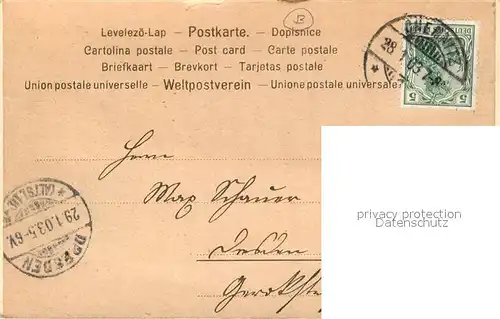 Levelező-Lap — Postkarte. — Dopisnice
Cartolina postale — Post card — Carte postale
Briefkaart — Brevkort — Tarjetas postale
Union postale universelle — Weltpostverein — Unione postale universale?
CHEMNITZ
28.1.03.7-8
5 5
Herrn
Max Schauer
Dresden
privacy protection
Datenschutz
DRESDEN
29.1.03.5-6V.